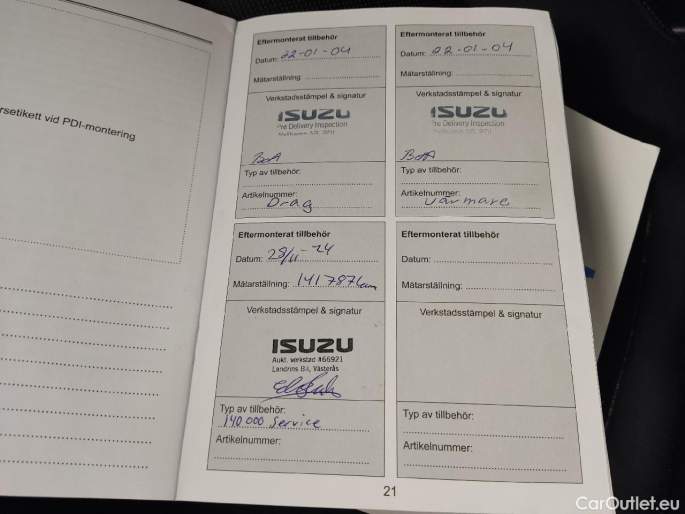 rsetikett vid PDI-montering
Eftermonterat tillbehör
Datum: 22-01-04
Mätarställning:
Verkstadsstämpel & signatur
ISUZU
Pre Delivery Inspection
Typ av tillbehör:
Artikelnummer:
Drag
Eftermonterat tillbehör
Datum: 22-01-04
Mätarställning:
Verkstadsstämpel & signatur
ISUZU
Pre Delivery Inspection
Typ av tillbehör:
Artikelnummer:
Värmare
Eftermonterat tillbehör
Datum: 28/11-24
Mätarställning: 141787km
Verkstadsstämpel & signatur
ISUZU
Aukt. verkstad #66921
Landrins Bil, Västerås
Typ av tillbehör:
140 000 Service
Artikelnummer:
Eftermonterat tillbehör
Datum:
Mätarställning:
Verkstadsstämpel & signatur
Typ av tillbehör:
Artikelnummer:
21
CarOutlet.eu